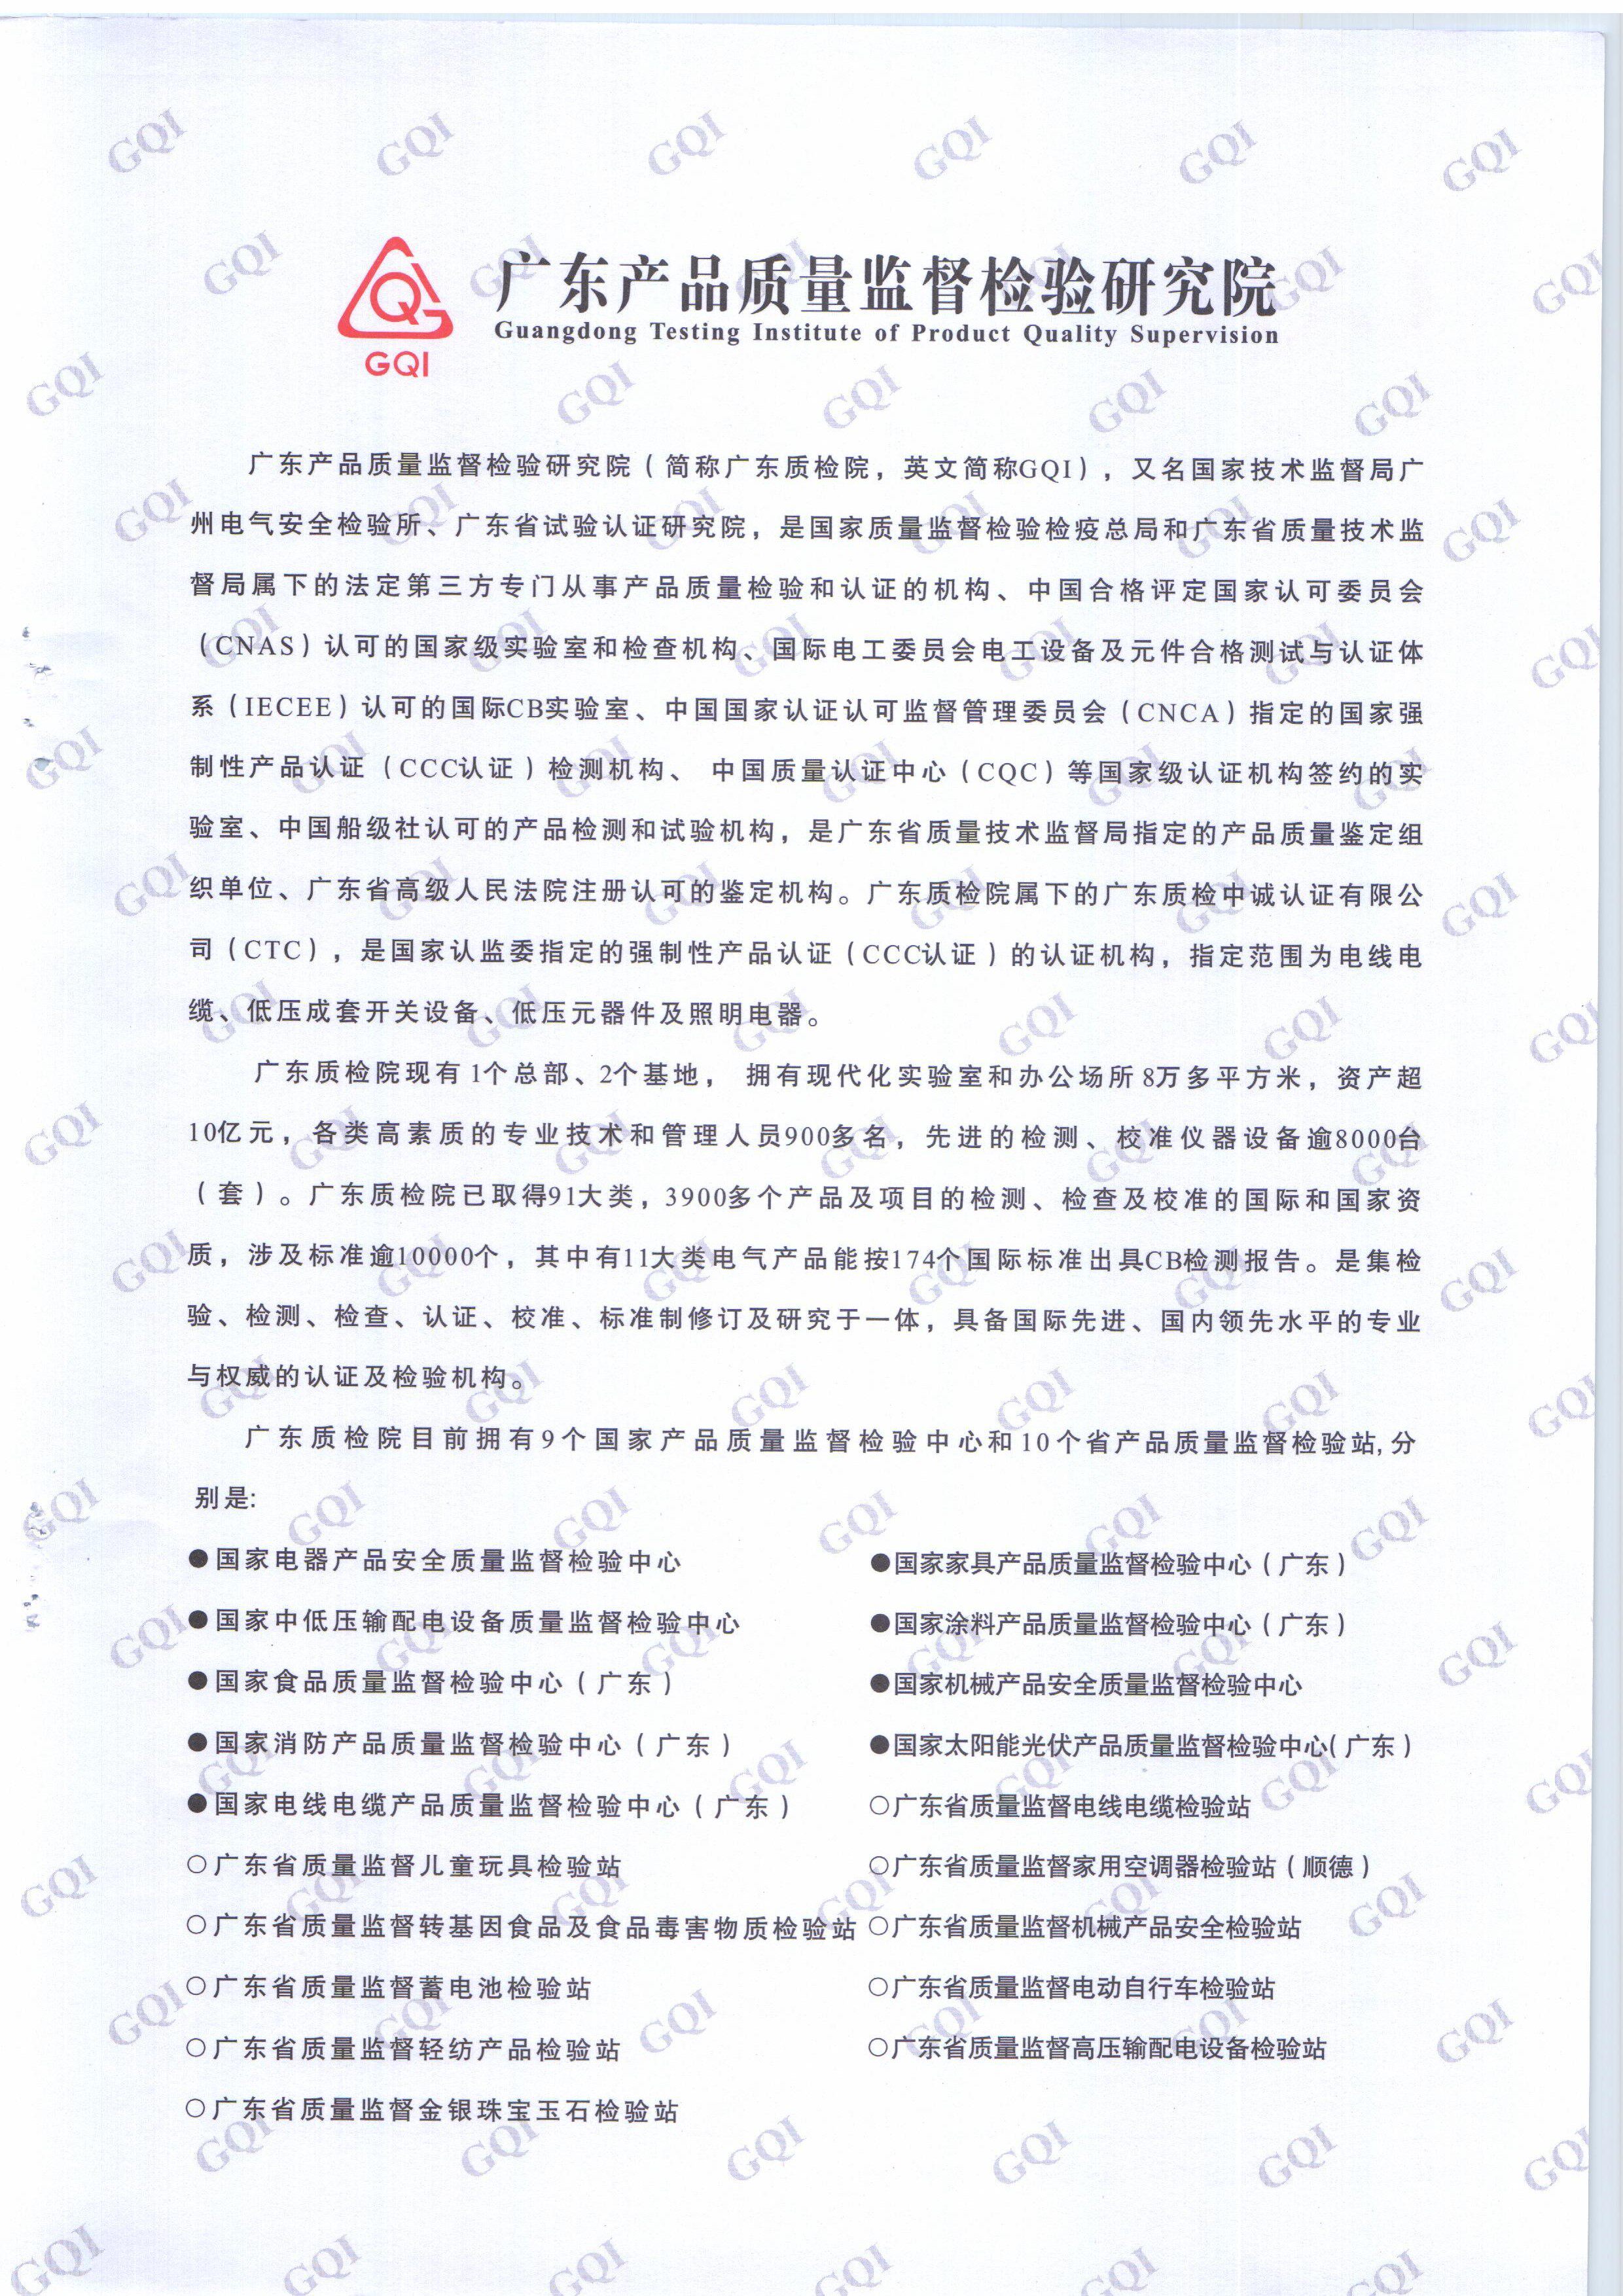 广东产品质量监督检验研究院
Guangdong Testing Institute of Product Quality Supervision
GQI
广东产品质量监督检验研究院（简称广东质检院，英文简称GQI），又名国家技术监督局广
州电气安全检验所、广东省试验认证研究院，是国家质量监督检验检疫总局和广东省质量技术监
督局属下的法定第三方专门从事产品质量检验和认证的机构、中国合格评定国家认可委员会
（CNAS）认可的国家级实验室和检查机构、国际电工委员会电工设备及元件合格测试与认证体
系（IECEE）认可的国际CB实验室、中国国家认证认可监督管理委员会（CNCA）指定的国家强
制性产品认证（CCC认证）检测机构、 中国质量认证中心（CQC）等国家级认证机构签约的实
验室、中国船级社认可的产品检测和试验机构，是广东省质量技术监督局指定的产品质量鉴定组
织单位、广东省高级人民法院注册认可的鉴定机构。广东质检院属下的广东质检中诚认证有限公
司（CTC），是国家认监委指定的强制性产品认证（CCC认证）的认证机构，指定范围为电线电
缆、低压成套开关设备、低压元器件及照明电器。
广东质检院现有1个总部、2个基地， 拥有现代化实验室和办公场所8万多平方米，资产超
10亿元，各类高素质的专业技术和管理人员900多名，先进的检测、校准仪器设备逾8000台
（套）。广东质检院已取得91大类，3900多个产品及项目的检测、检查及校准的国际和国家资
质，涉及标准逾10000个，其中有11大类电气产品能按174个国际标准出具CB检测报告。是集检
验、检测、检查、认证、校准、标准制修订及研究于一体，具备国际先进、国内领先水平的专业
与权威的认证及检验机构。
广东质检院目前拥有9个国家产品质量监督检验中心和10个省产品质量监督检验站,分
别是:
●国家电器产品安全质量监督检验中心 ●国家家具产品质量监督检验中心（广东）
●国家中低压输配电设备质量监督检验中心 ●国家涂料产品质量监督检验中心（广东）
●国家食品质量监督检验中心（广东） ●国家机械产品安全质量监督检验中心
●国家消防产品质量监督检验中心（广东） ●国家太阳能光伏产品质量监督检验中心(广东）
●国家电线电缆产品质量监督检验中心（广东） ○广东省质量监督电线电缆检验站
○广东省质量监督儿童玩具检验站 ○广东省质量监督家用空调器检验站（顺德）
○广东省质量监督转基因食品及食品毒害物质检验站 ○广东省质量监督机械产品安全检验站
○广东省质量监督蓄电池检验站 ○广东省质量监督电动自行车检验站
○广东省质量监督轻纺产品检验站 ○广东省质量监督高压输配电设备检验站
○广东省质量监督金银珠宝玉石检验站